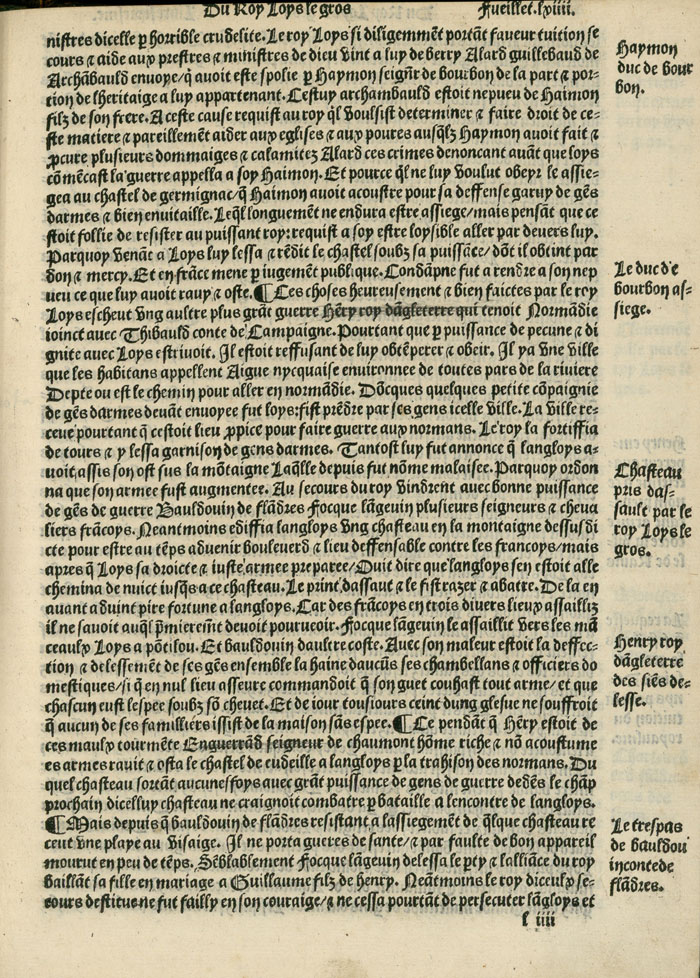 Du Roy Loys le gros Fueillet.lxiiii.
nistres dicelle p horrible crudelite. Le roy Loys si diligemmēt portāt faveur tuition se
cours ⁊ aide aux prestres ⁊ ministres de dieu vint a luy de berry Alard guillebauld de
Archābauld envoye/q̄ avoit este spolie p Haymon seignr̄ de bourbon de la part ⁊ por-
tion de lheritaige a luy appartenant. Cestuy archambauld estoit nepueu de Haimon
filz de son frere. A ceste cause requist au roy q̄l voulsist determiner ⁊ faire droit de ce-
ste matiere ⁊ pareillemēt aider aux eglises ⁊ aux poures ausq̄lz Haymon avoit fait ⁊
pcure plusieurs dommaiges ⁊ calamitez Alard ces crimes denoncant avāt que loys
cōmēcast la guerre appella a soy Haimon. Et pource q̄l ne luy voulut obeyr le assie-
gea au chastel de germignac/q̄ Haimon avoit acoustre pour sa deffense garny de gēs
darmes ⁊ bien envitaille. Leq̄l longuemēt ne endura estre assiege/mais pensāt que ce
stoit follie de resister au puissant roy: requist a soy estre loysible aller par devers luy.
Parquoy venāt a Loys luy lessa ⁊ rēdit le chastel soubz sa puissāce/dōt il obtint par
don ⁊ mercy. Et en frāce mene p iugemēt publique. Condāpne fut a rendre a son nep
veu ce que luy avoit ravy ⁊ oste. ¶ Ces choses heureusement ⁊ bien faictes par le roy
Loys escheut vng aultre plus grāt guerre Hēry roy dāgleterre qui tenoit Normādie
ioinct avec Thibauld conte de Campaigne. Pourtant que p puissance de pecune ⁊ di
gnite avec Loys estrivoit. Il estoit reffusant de luy obtēperer ⁊ obeir. Il ya vne ville
que les habitans appellent Aigue nycquaise environnee de toutes pars de la riviere
Depte ou est le chemin pour aller en normādie. Dōcques quelques petite cōpaignie
de gēs darmes devāt envoyee fut loys: fist prēdre par ses gens icelle ville. La ville re-
ceue pourtant q̄ cestoit lieu ppice pour faire guerre aux normans. Le roy la fortiffia
de tours ⁊ y lessa garnison de gens darmes. Tantost luy fut annonce q̄ langloys a-
voit assis son ost sus la mōtaigne Laq̄lle depuis fut nōme malaisee. Parquoy ordon
na que son armee fust augmentee. Au secours du roy vindrent avec bonne puissance
de gēs de guerre Bauldouin de flādres Focque lāgevin plusieurs seigneurs ⁊ cheva
liers frācoys. Neantmoins ediffia langloys vng chasteau en la montaigne dessusdi
cte pour estre au tēps advenir boulevert ⁊ lieu deffensable contre les francoys/mais
apres q̄ Loys sa droicte ⁊ iuste armee preparee/Ouit dire que langloys sen estoit alle
chemina de nuict iusq̄s a ce chasteau. Le print dassaut ⁊ le fist razer ⁊ abatre. De la en
avant advint pire fortune a langloys. Car des frācoys en trois divers lieux assailliz
il ne savoit auq̄l pmieremēt devoit pourveoir. Focque lāgevin le assaillit vers les mā
ceaulx Loys a pōtilou. Et bauldouin daultre coste. Avec son maleur estoit la deffec-
tion ⁊ delessemēt de ses gēs ensemble la haine daucūs ses chambellans ⁊ officiers do
mestiques/si q̄ en nul lieu asseure commandoit q̄ son guet couhast tout arme/et que
chascun eust lespee soubz sō chevet. Et de iour tousiours ceint dung glesve ne souffroit
q̄ aucun de ses familliers issist de la maison sās espee. ¶ Ce pendāt q̄ Hēry estoit de
ces maulx tourmēte Enguerrād seigneur de chaumont hōme riche ⁊ nō acoustume
es armes ravit ⁊ osta le chastel de eudeille a langloys p la trahison des normans. Du
quel chasteau sortāt aucunesfoys avec grāt puissance de gens de guerre dedēs le chāp
prochain dicelluy chasteau ne craignoit combatre p bataille a lencontre de langloys.
¶ Mais depuis q̄ bauldouin de flādres resistant a lassiegement de q̄lque chasteau re
ceut vne playe au visaige. Il ne porta gueres de sante/⁊ par faulte de bon appareil
mourut en peu de tēps. Sēblablement Focque lāgevin delessa le pty ⁊ lalliāce du roy
baillāt sa fille en mariage a Guillaume filz de henry. Neātmoins le roy diceulx se-
cours destitue ne fut failly en son couraige/⁊ ne cessa pourtāt de persecuter lāgloys et
l iiii
Haymon
duc de bour
bon.
Le duc de
bourbon as-
siege.
Chasteau
pris das-
sault par le
roy Loys le
gros.
Henry roy
dāgleterre
des siēs de-
lesse.
Le trespas
de bauldoui
in conte de
flādres.